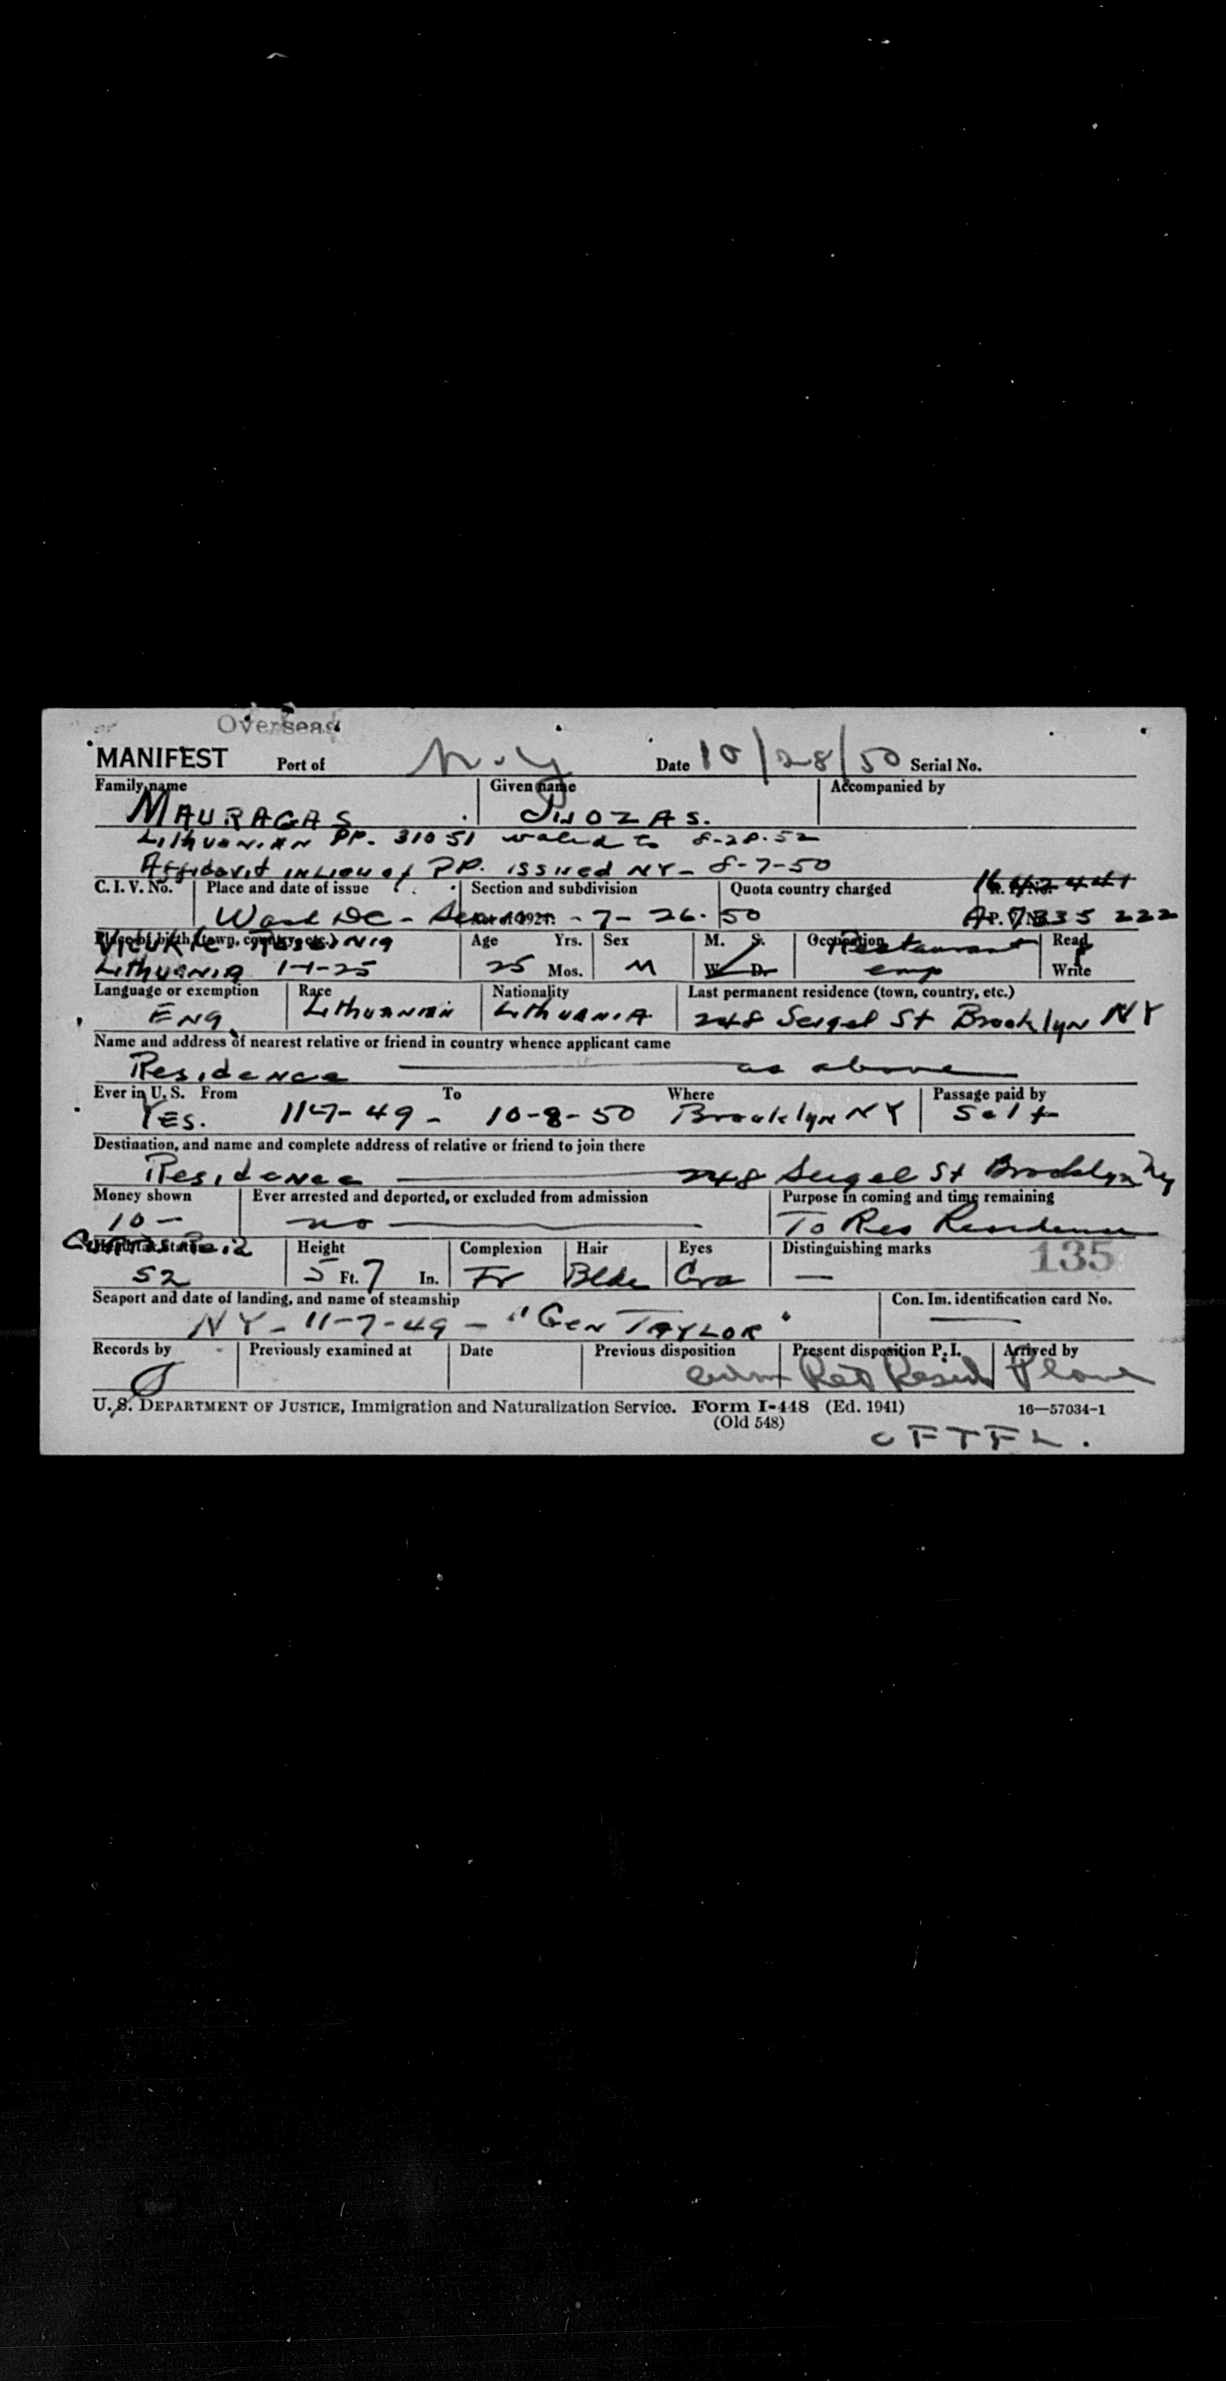 Overseas
MANIFEST Port of N.Y Date 10/28/50 Serial No.
Family name Given name Accompanied by
MAURAGAS JUOZAS.
LITHUANIAN PP. 31051 valid to 8-28-52
Affidavit in lieu of PP. issued NY- 8-7-50
C. I. V. No. Place and date of issue Section and subdivision Quota country charged 1642441
Wash DC - 7- 26. 50 A. 7835 222
Place of birth (town, country, etc.) Age Yrs. Sex M. S. Occupation Restaurant Read
LITHUANIA 1-1-25 25 Mos. M W. D. emp Write
Language or exemption Race Nationality Last permanent residence (town, country, etc.)
ENG LITHUANIAN LITHUANIA 248 Seigel St Brooklyn NY
Name and address of nearest relative or friend in country whence applicant came
Residence as above
Ever in U. S. From To Where Passage paid by
YES. 11-7-49- 10-8-50 Brooklyn NY Self
Destination, and name and complete address of relative or friend to join there
Residence 248 Seigel St Brooklyn Ny
Money shown Ever arrested and deported, or excluded from admission Purpose in coming and time remaining
10- no To Res Residence
Height Complexion Hair Eyes Distinguishing marks 135
52 5 Ft. 7 In. Fr Blde Gra —
Seaport and date of landing, and name of steamship Con. Im. identification card No.
NY- 11-7-49 - "GEN TAYLOR"
Records by Previously examined at Date Previous disposition Present disposition P. I. Arrived by
adm Ret Resid Plane
U. S. DEPARTMENT OF JUSTICE, Immigration and Naturalization Service. Form I-448 (Ed. 1941) 16—57034-1
(Old 548)